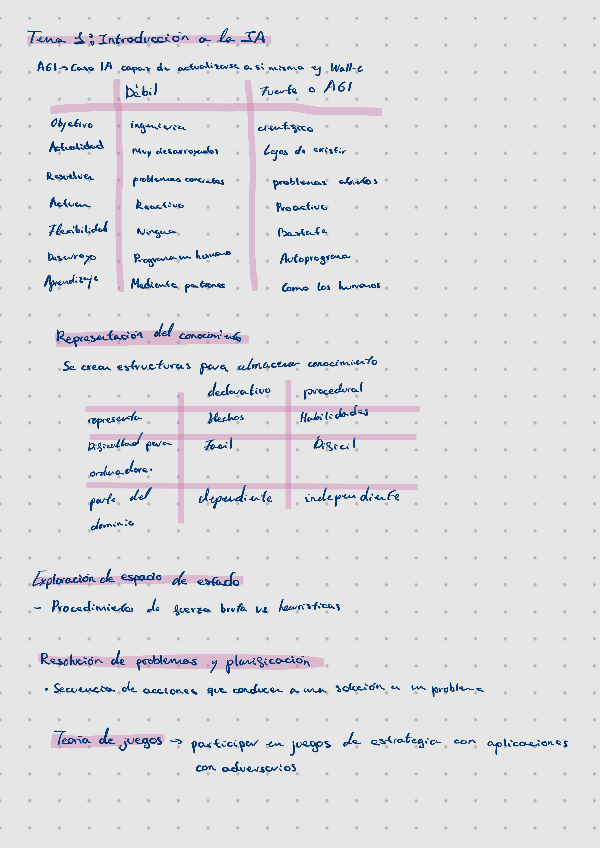 Tema 1: Introducción a la IA
AGI → Caso IA capaz de actualizarse a si misma ej Wall-e
Débil Fuerte o AGI
Objetivo ingenieria cientifico
Actualidad Muy desarroyados Lejos de existir
Resuelven problemas concretos problemas abiertos
Actuan Reactivo Proactivo
Flexibilidad Ningua Bastate
Desarroyo Programa un humano Autoprograma
Aprendizaje Mediante patrones Como los humanos
Representación del conocimiento
Se crean estructuras para almacenar conocimiento
declarativo procedural
representa Hechos Habilidades
Dificultad para Facil Dificil
ordenadora.
parte del dependiente independiente
dominio
Exploración de espacio de estado
- Procedimientos de fuerza bruta vs heuristicas
Resolución de problemas y planificación
• Secuencia de acciones que conducen a una solución a un problema
Teoria de juegos → participar en juegos de estrategia con aplicaciones
con adversarios